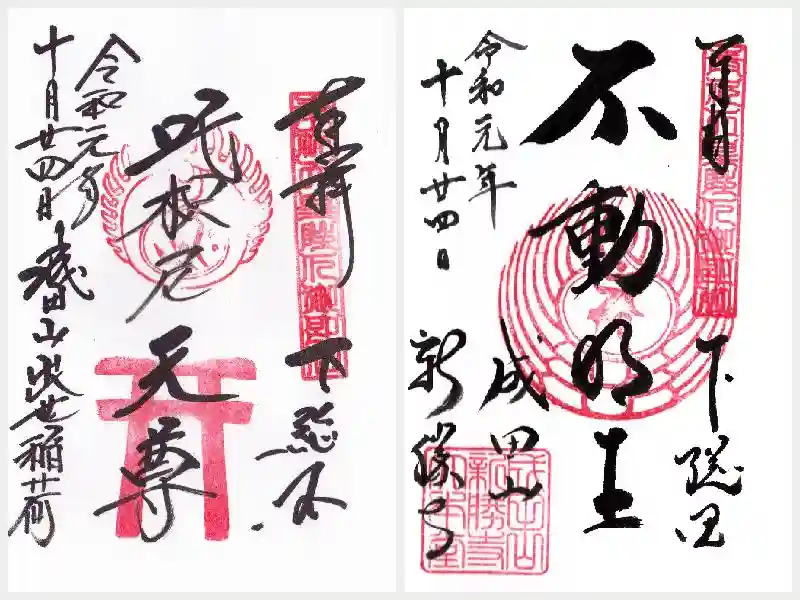 奉拝 下総国
吒枳尼天尊
令和元年
十月廿四日 成田山出世稲荷
奉拝 下総国
不動明王
令和元年
十月廿四日
成田山
新勝寺
成田山
新勝寺